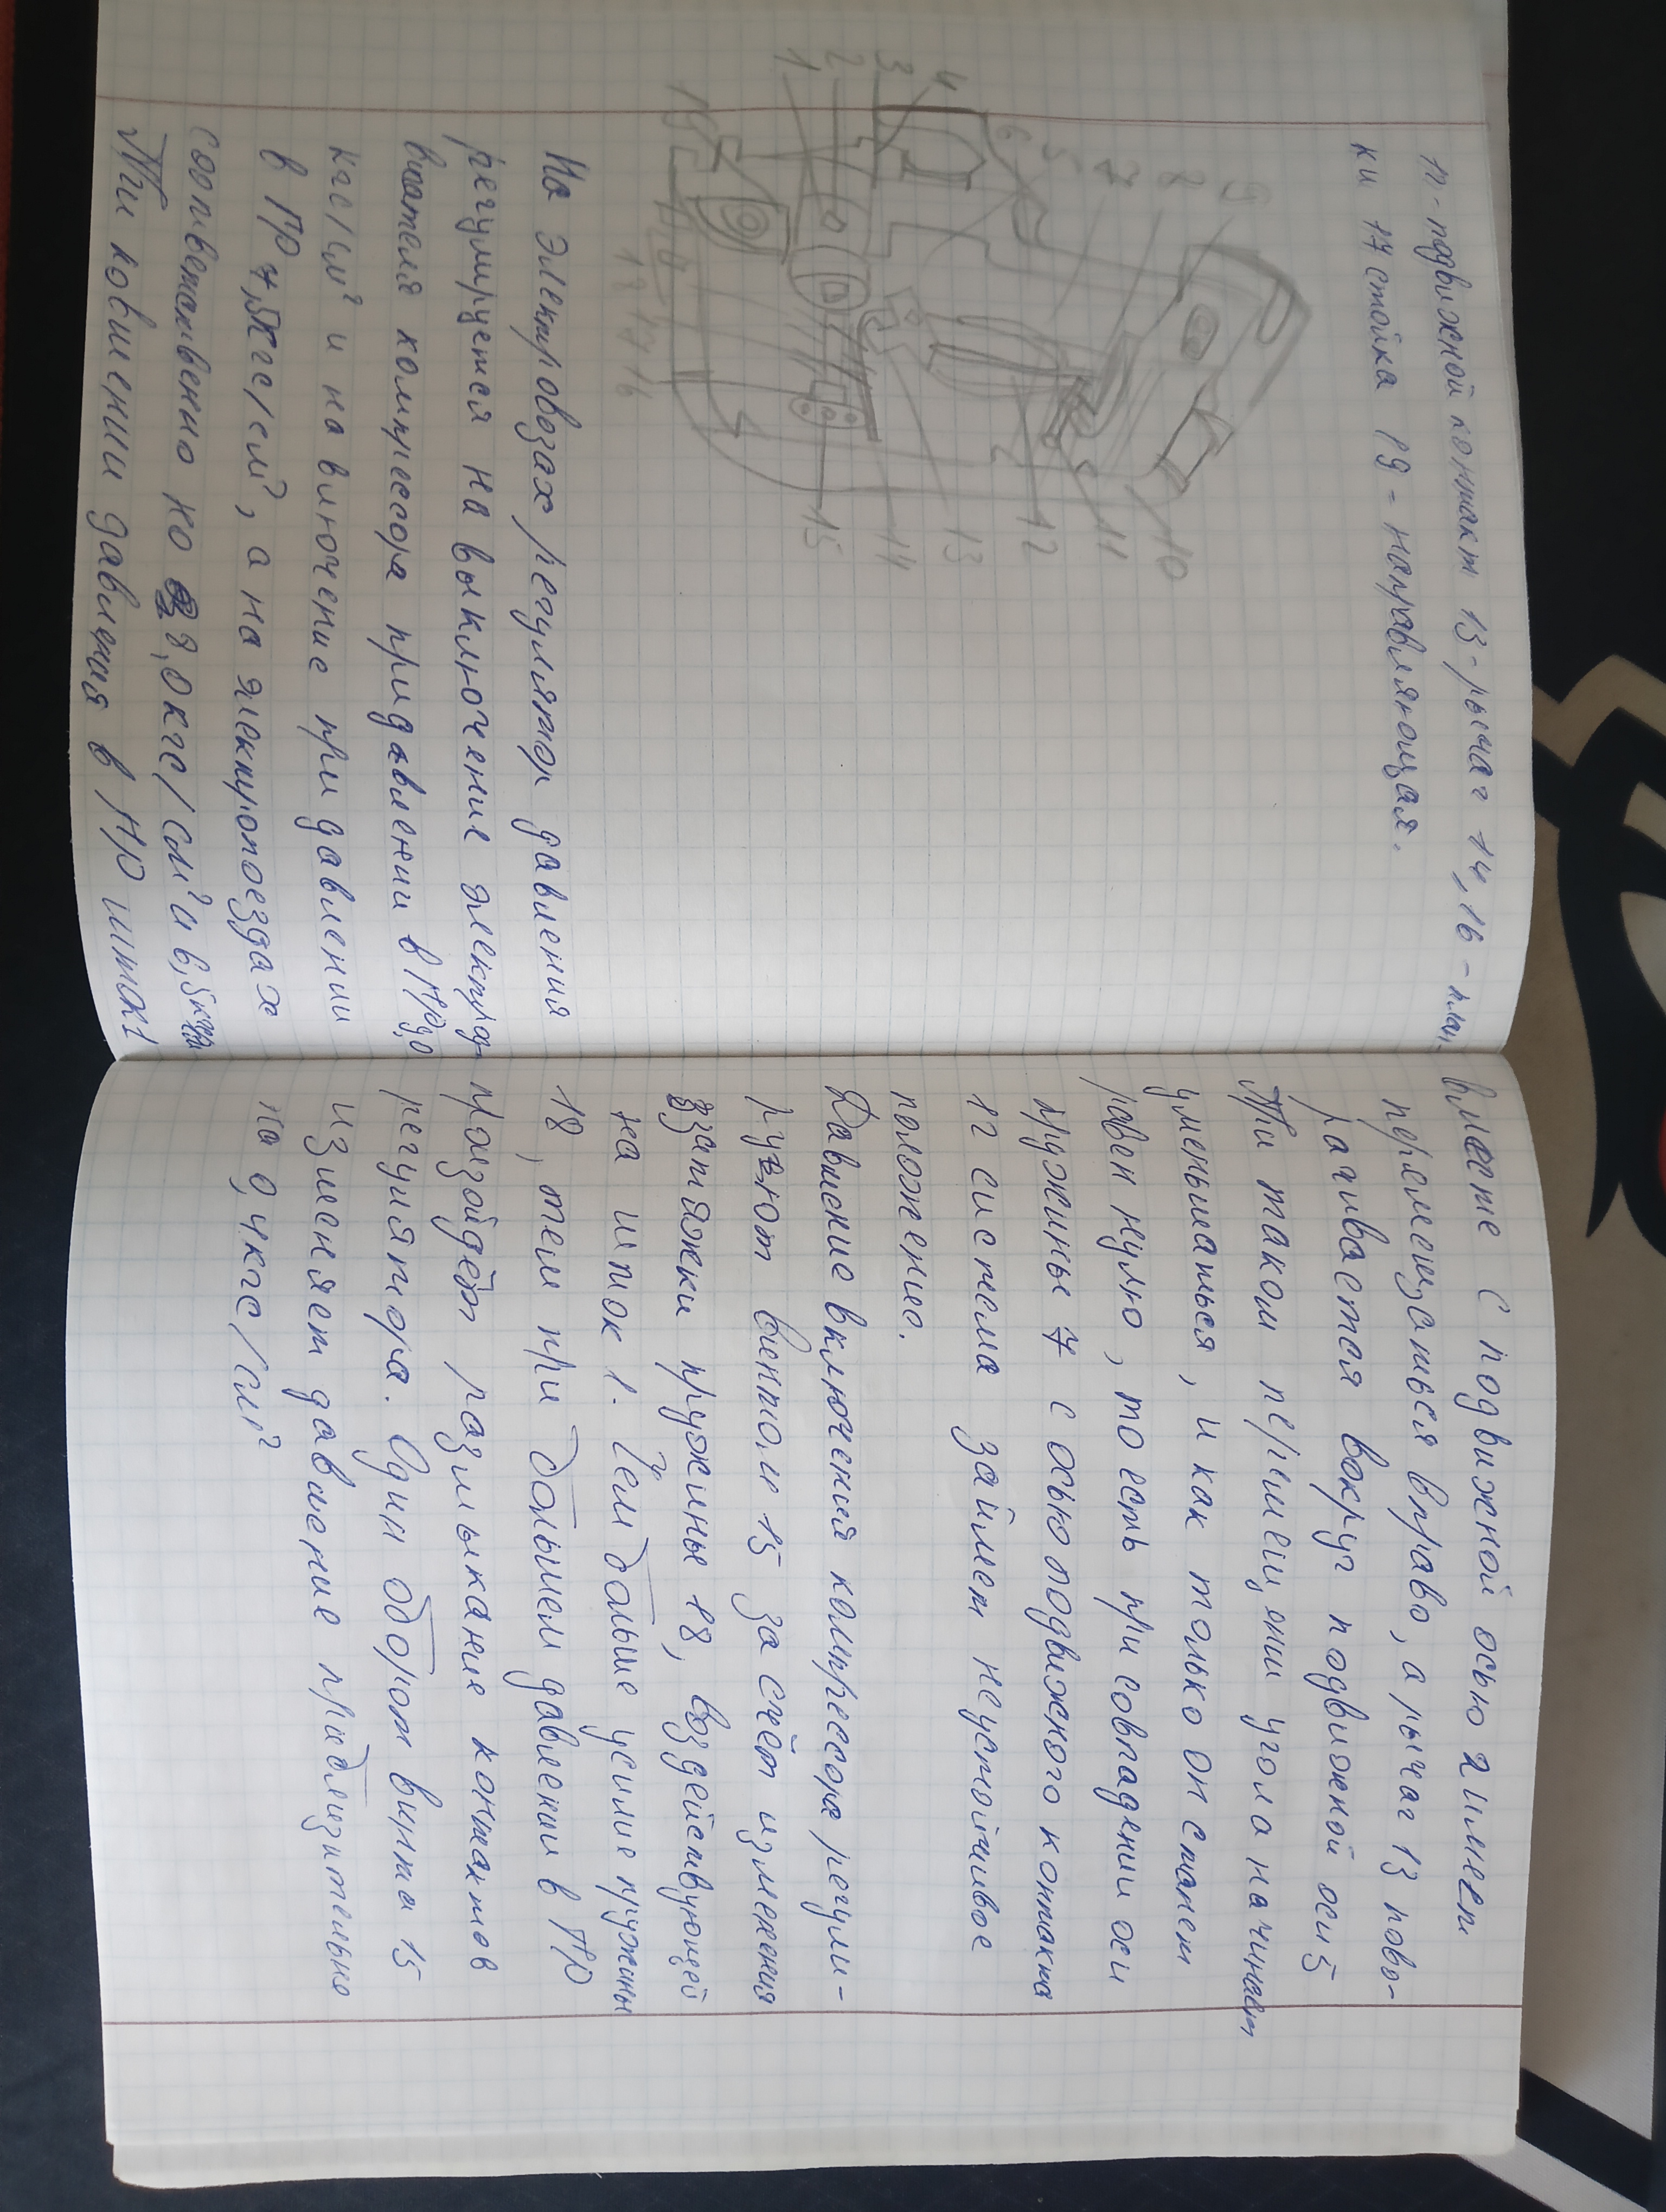 п-подвижной контакт 13-рычаг 14,16-план-
ки 17 стойка 19-направляющая.
1 2 3 4 6 5 7 8 9
10 11 12 13 14 15
19 18 17 16
На электровозах регулятор давления
регулируется на выключение электро-
вигателя компрессора при давлении в НР 9,0
кгс/см² и на включение при давлении
в ПР 7,5кгс/см², а на электропоездах
соответственно но 8,0кгс/см² и 6,5кгс
При повшении давления в НР шток 1
вместе с подвижной осью 2 имеет
перемещаться вправо, а рычаг 13 пово-
рачивается вокруг подвижной оси 5
При таком перемещении угол начинает
уменьшаться, и как только он станет
равен нулю, то есть при совпадении оси
пружины 7 с осью подвижного контакта
12 система займет неустойчивое
положение.
Давление включения компрессора регули-
руют винтом 15 за счёт изменения
затяжки пружины 18, воздействующей
на шток 1. Чем больше усилие пружины
18, тем при большем давлении в ПР
произойдёт размыкание контактов
регулятора. Один оборот винта 15
изменяет давление приблизительно
на 0,4кгс/см²